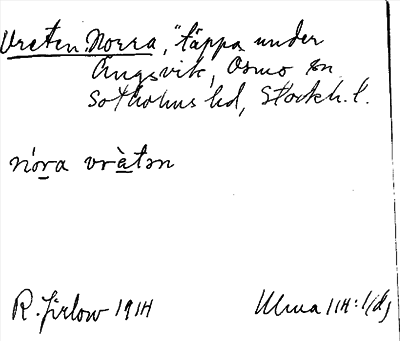 Vreten, Norra, "täppa under
Ängsvik, Ösmo sn
Sotholms hd, Stockh. l.
nóra vrètən
R. Jirlow 1914
Ulma 114:1(d)